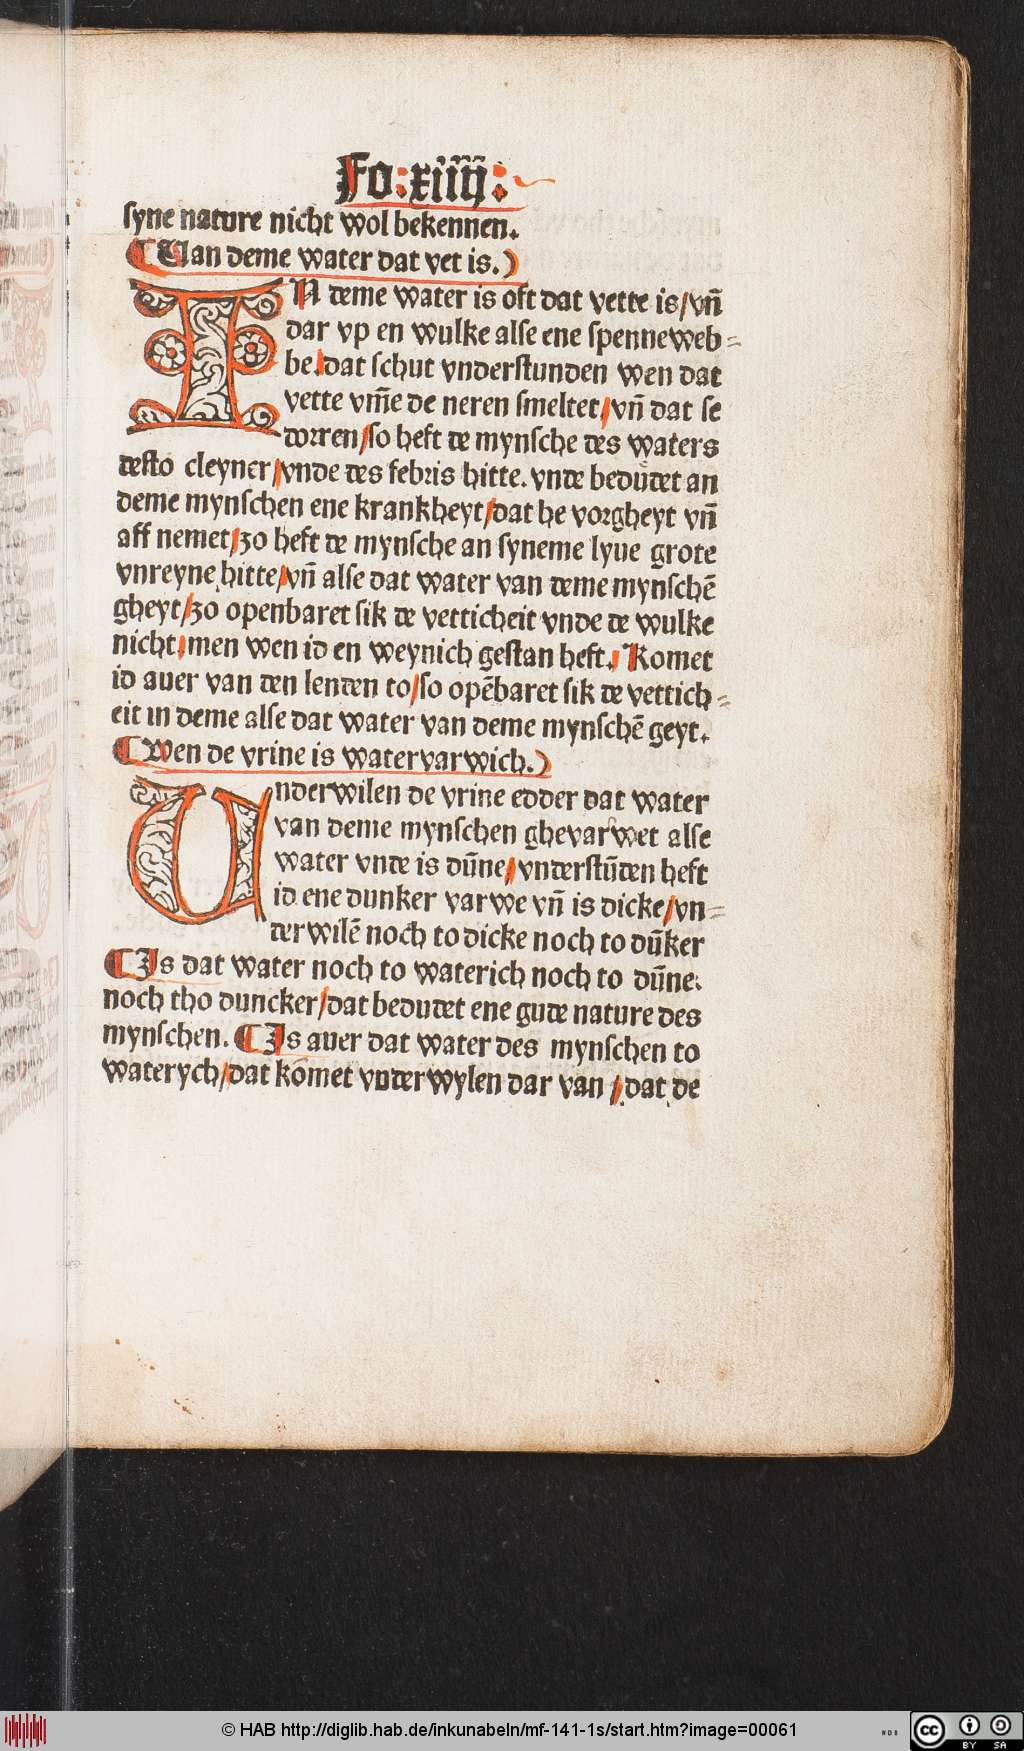 Fo: xiiij:
ſyne nature nicht wol bekennen.
¶ Uan deme water dat vet is.)
IN deme water is oft dat vette is/vn̄
dar vp en wulke alſe ene ſpenneweb⸗
be/dat ſchut vnderſtunden wen dat
vette vm̄e de neren ſmeltet/vn̄ dat ſe
dorren/ſo heft de mynſche des waters
deſto cleyner/vnde des febris hitte. vnde bedůdet an
deme mynſchen ene krankheyt/dat he vorgheyt vn̄
aff nemet/zo heft de mynſche an ſyneme lyue grote
vnreyne hitte/vn̄ alſe dat water van deme mynſchē
gheyt/zo openbaret ſik de vetticheit vnde de wulke
nicht/men wen id en weynich geſtan heft. Komet
id auer van den lenden to/ſo opēbaret ſik de vettich⸗
eit in deme alſe dat water van deme mynſchē geyt.
¶ Wen de vrine is watervarwich.)
Underwilen de vrine edder dat water
van deme mynſchen ghevarwet alſe
water vnde is dūne/vnderſtūden heft
id ene dunker varwe vn̄ is dicke/vn⸗
derwilē noch to dicke noch to dūker
¶ Is dat water noch to waterich noch to dūne:
noch tho duncker/dat bedudet ene gude nature des
mynſchen. ¶ Is auer dat water des mynſchen to
waterych/dat kōmet vnderwylen dar van / dat de
© HAB http://diglib.hab.de/inkunabeln/mf-141-1s/start.htm?image=00061
WDB
cc BY SA